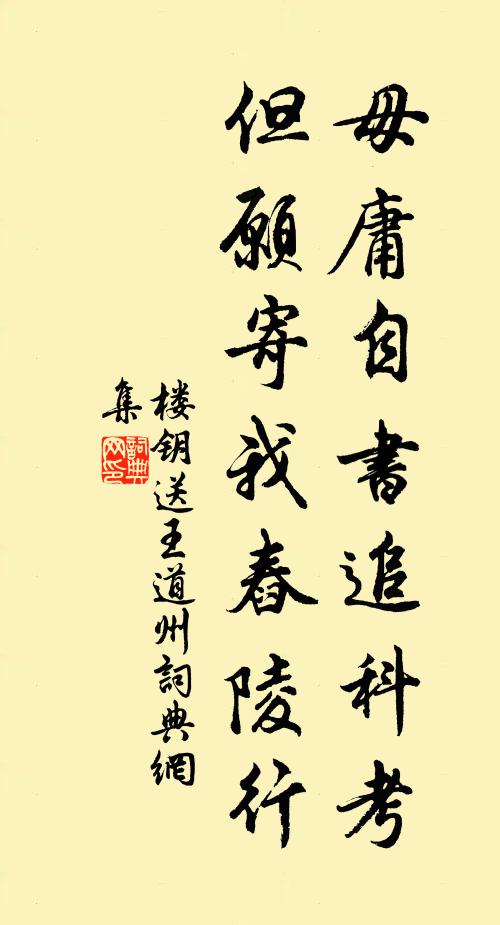 毋庸自書追科考
但願寄我舂陵行
楼钥送王道州詞典網
集
詞典
网印